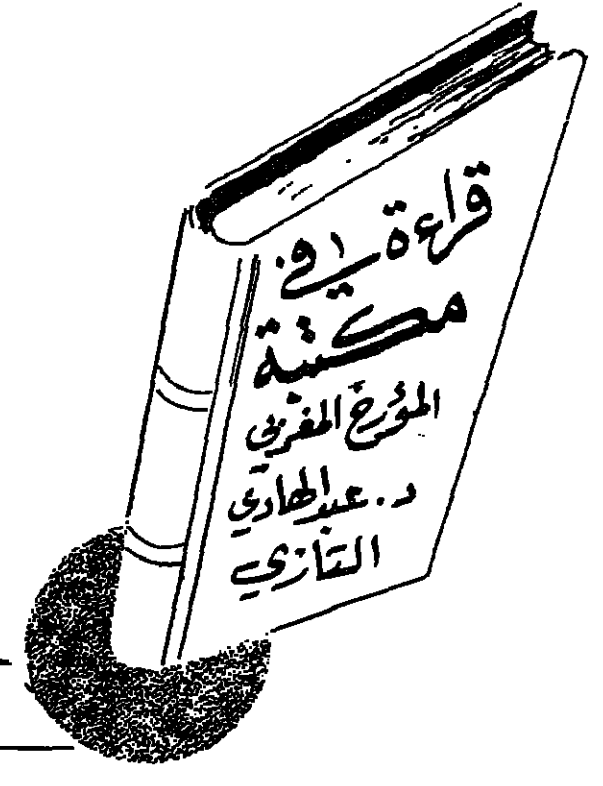 قراءة في
مكتبة
المؤرخ المغربي
د. عبد الهادي
التازي